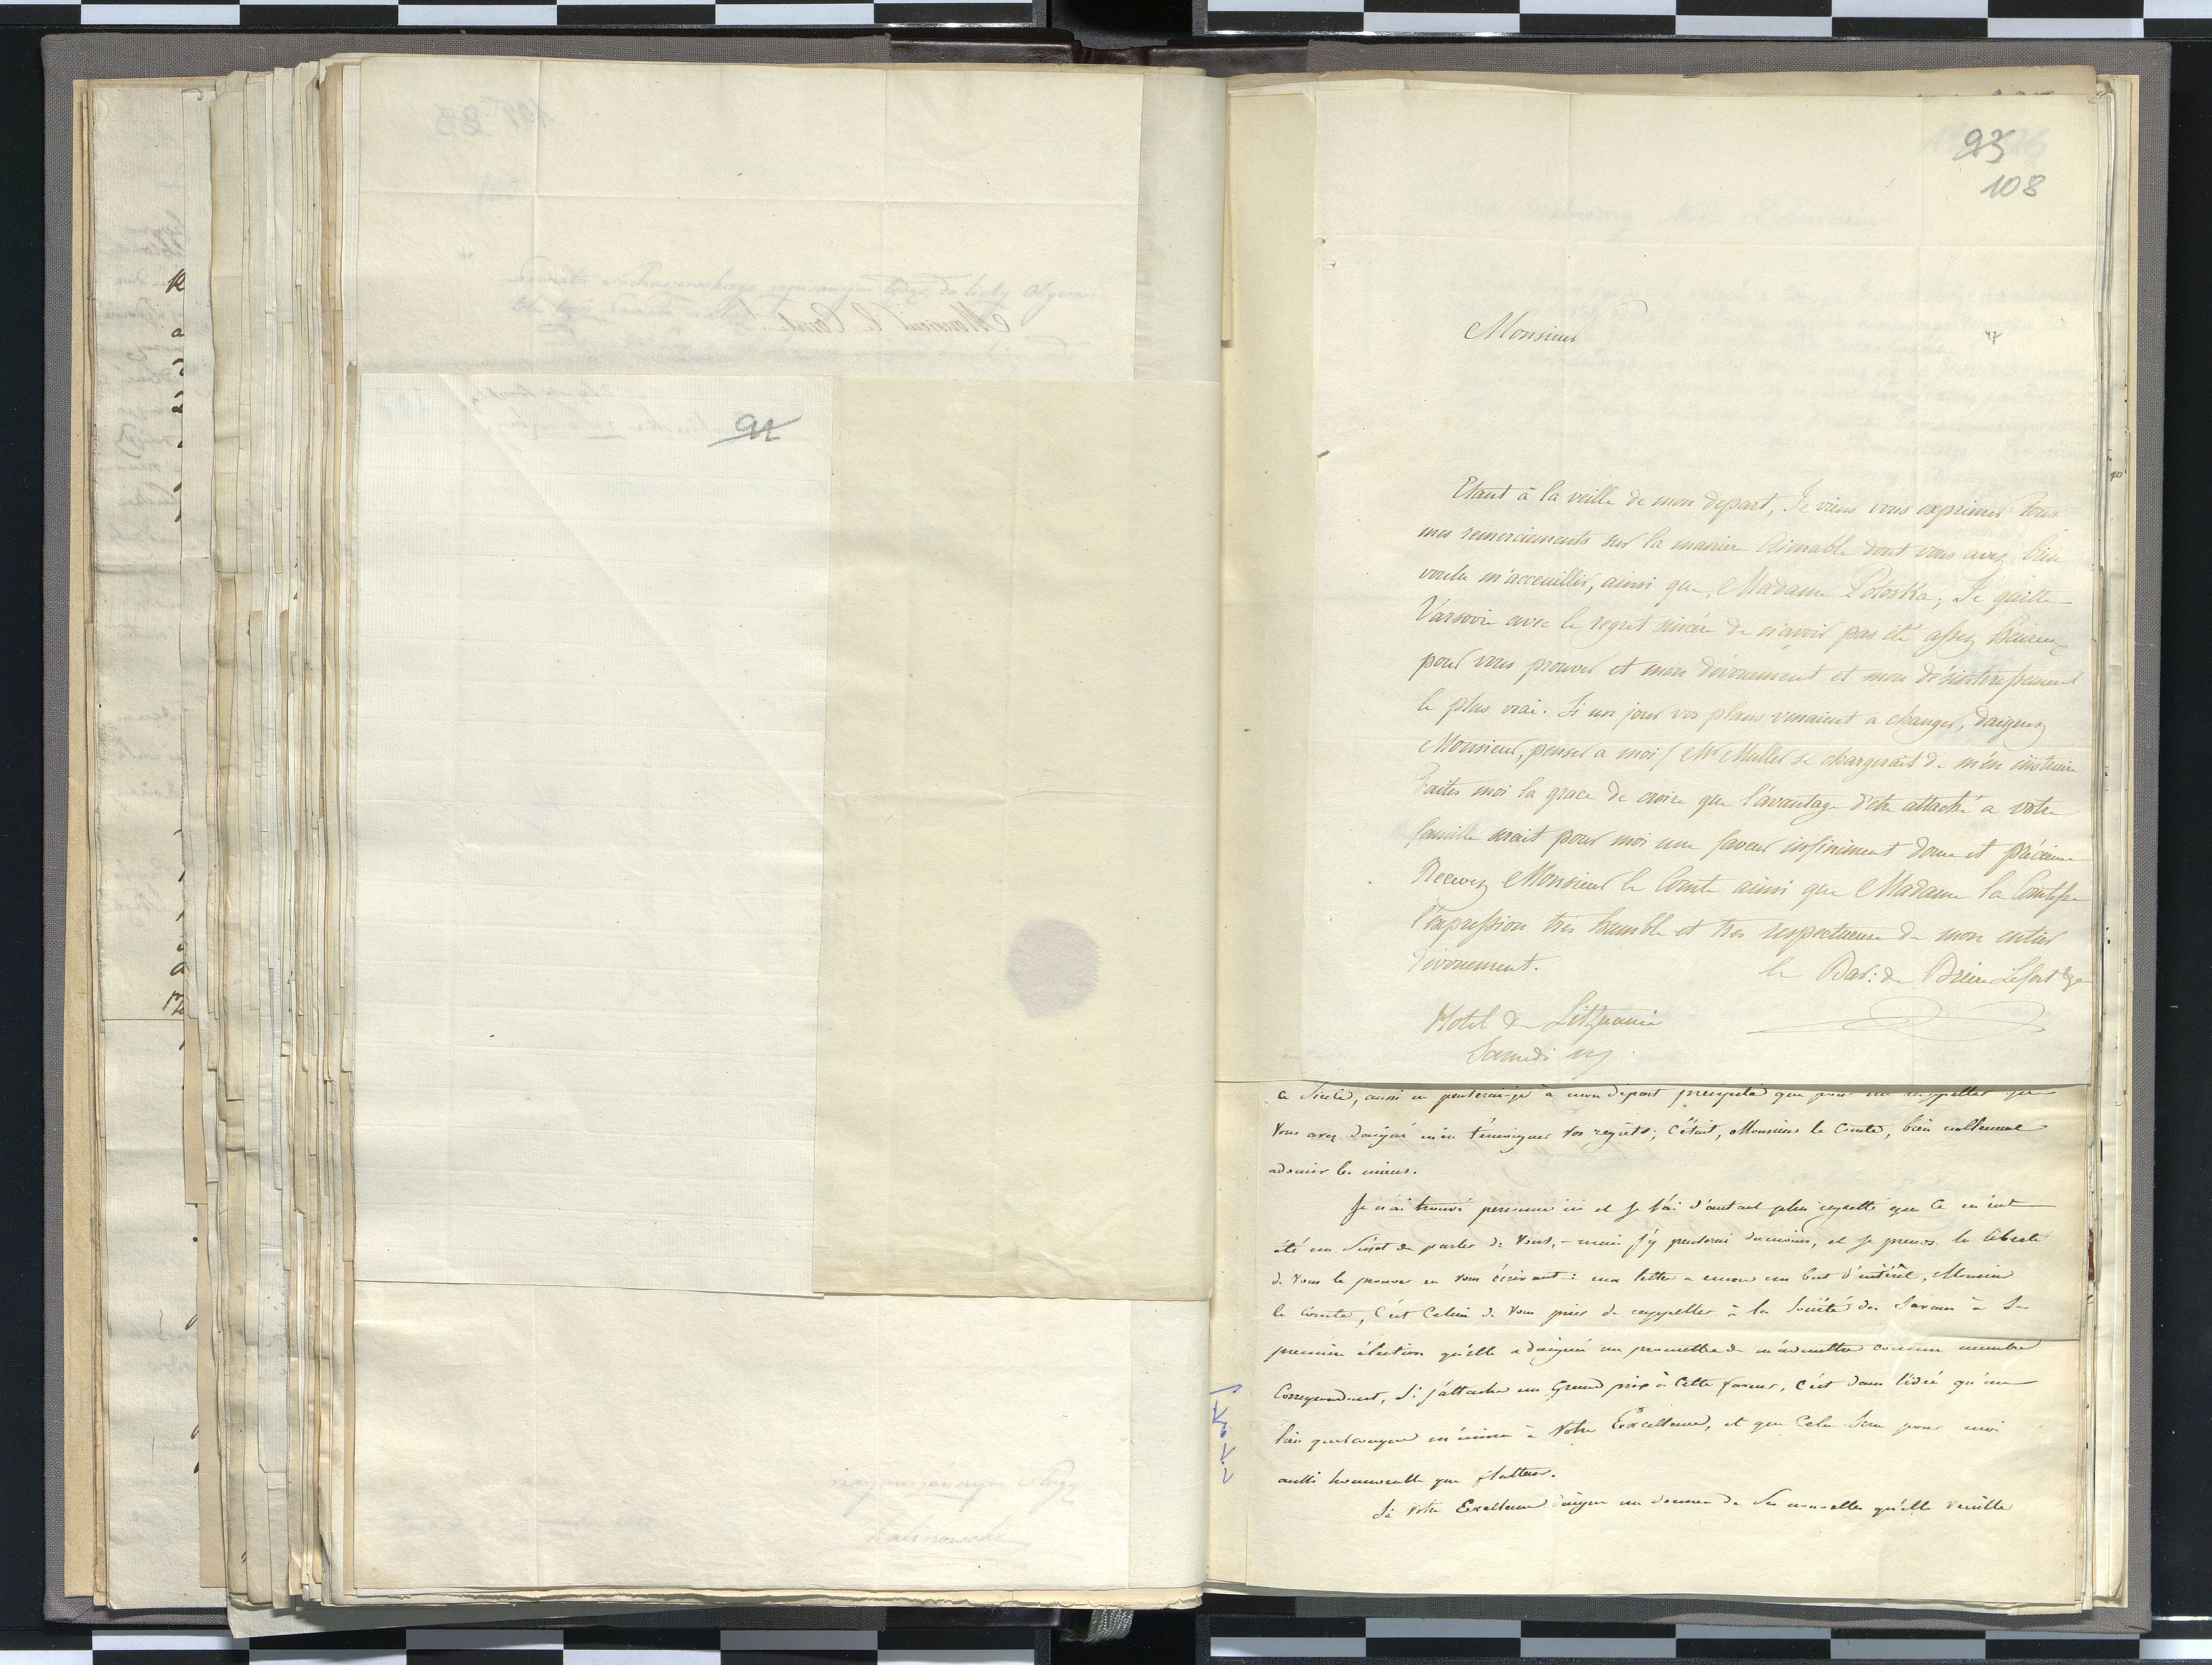 92
93
108
Monsieur
47
Etant à la veille de mon depart, Je viens vous exprimer tous
mes remerciements sur la maniere aimable dont vous avez bien
voulu m'accceuillir, ainsi que Madame Potoska; Je quitte
Varsovie avec le regret sincère de n'avoir pas été assez heureux
pour vous prouver et mon dévouement et mon désinteressement
le plus vrai. Si un jour vos plans venaient a changer, daignez
Monsieur, penser a moi / Mr Muller se chargerait de m'en instruire
Faites moi la grace de croire que l'avantage d'etre attaché a votre
famille serait pour moi une faveur infiniment douce et précieuse
Recevez Monsieur le Comte ainsi que Madame la Comtesse
l'expression très humble et tres respectueuse de mon entier
dévouement.
le Bar: de Lefort
Hotel de Lithuanie
Samedi
ce Siecle, aussi ne penserai-je à mon départ que pour me rappeller que
Vous avez daigné m'en témoigner vos regrets; c'était, Monsieur le Comte, bien
adoucir les miens.
Je n'ai trouvé personne ici et je l'ai d'autant plus regretté que ce m'eut
été un Sujet de parler de Vous, - mais j'y penserai du moins, et je prends la liberté
de Vous le prouver en Vous écrivant: ma lettre a encore un but d'intérêt, Monsieur
le Comte, c'est Celui de Vous prier de rappeller à la Société des Savans à Sa
première élection qu'elle a daigné me promettre de m'admettre comme membre
Correspondant, Si j'attache un Grand prix à Cette faveur, c'est dans l'idée qu'un
lien quelconque m'unira à Votre Excellence, et que Cela Sera pour moi
aussi honorable que flatteur.
Si Votre Excellence daigne me donner de Ses nouvelles qu'elle veuille